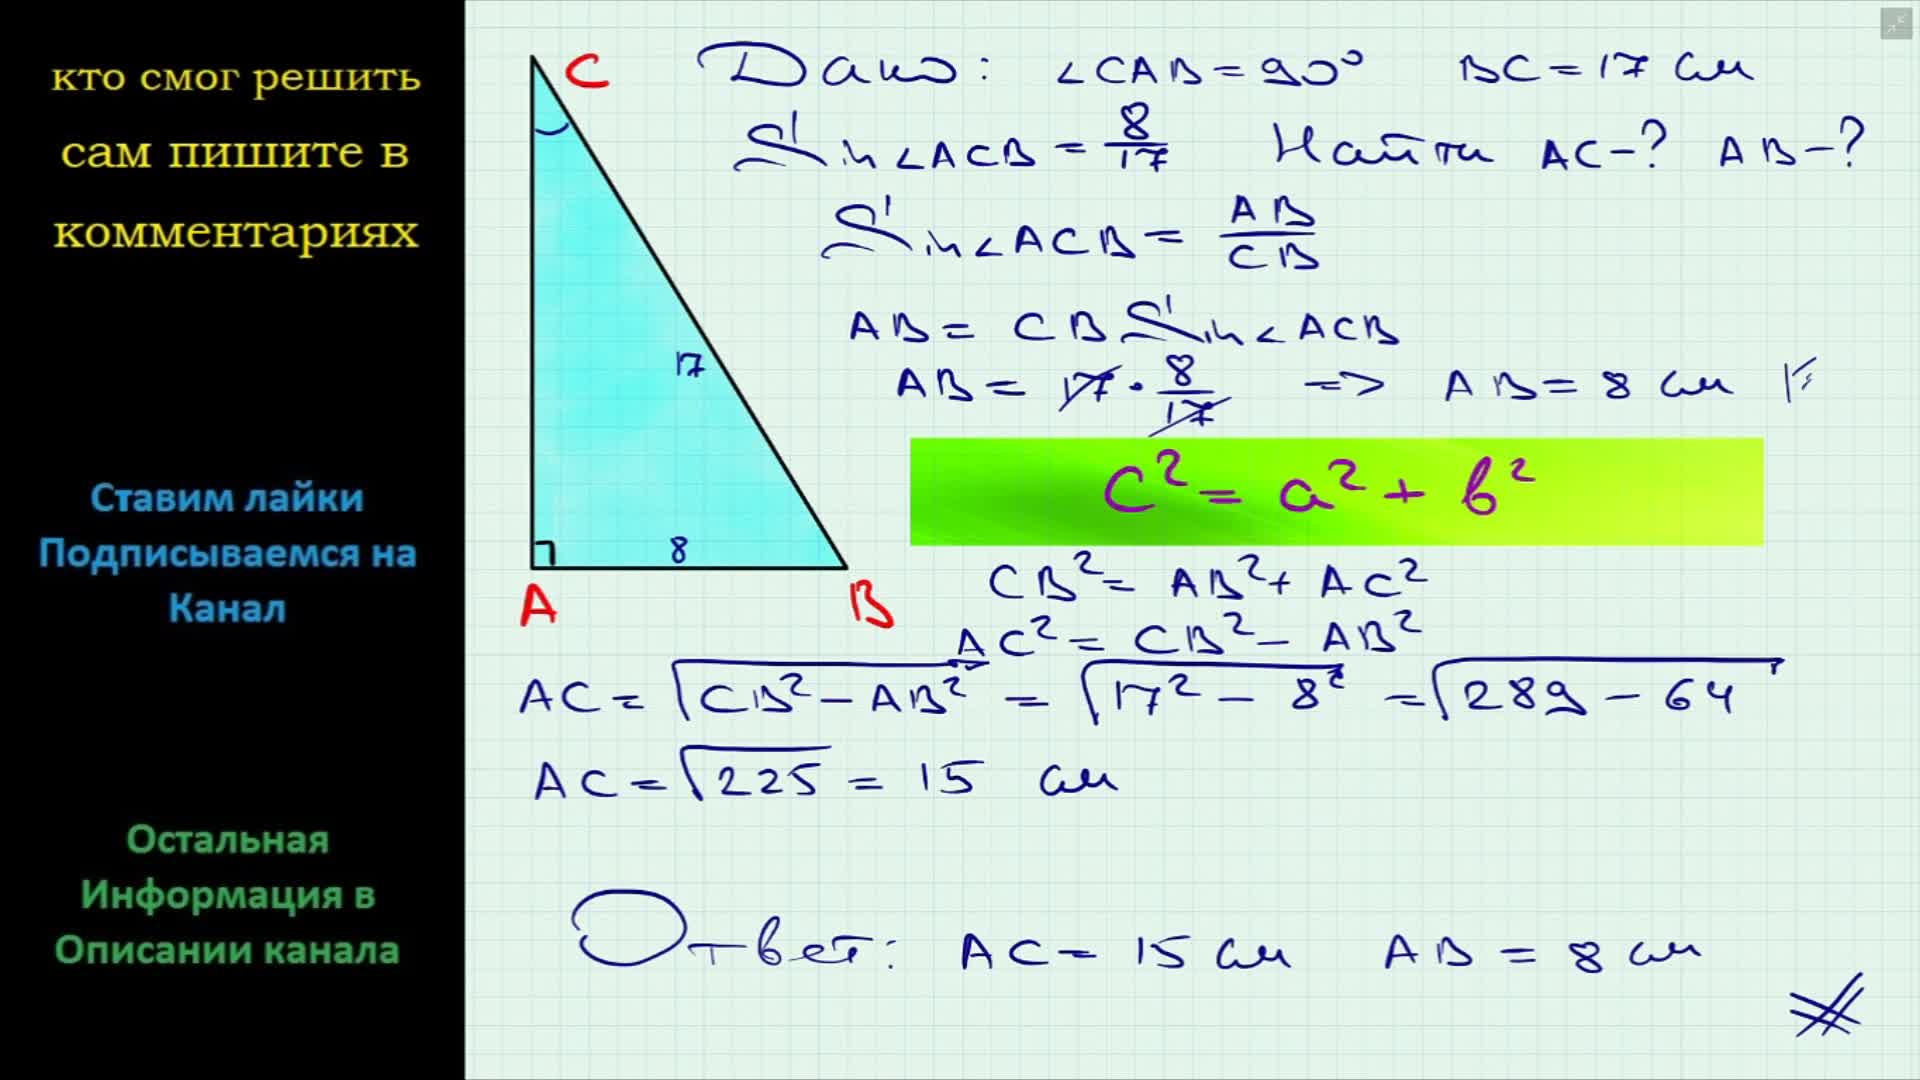 кто смог решить
сам пишите в
комментариях
Ставим лайки
Подписываемся на
Канал
Остальная
Информация в
Описании канала
C
17
8
A
B
Дано: ∠CAB = 90° BC = 17 см
Sin∠ACB = 8/17 Найти AC-? AB-?
Sin∠ACB = AB/CB
AB = CB Sin∠ACB
AB = 17 · 8/17 => AB = 8 см
C² = a² + b²
CB² = AB² + AC²
AC² = CB² - AB²
AC = √CB² - AB² = √17² - 8² = √289 - 64
AC = √225 = 15 см
Ответ: AC = 15 см AB = 8 см